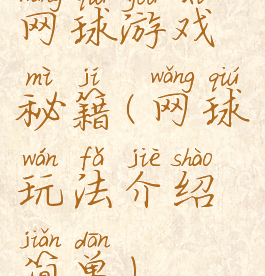 wǎng qiú yóu xì
网球游戏
mì jí wǎng qiú
秘籍(网球
wán fǎ jiè shào
玩法介绍
jiǎn dān
简单)